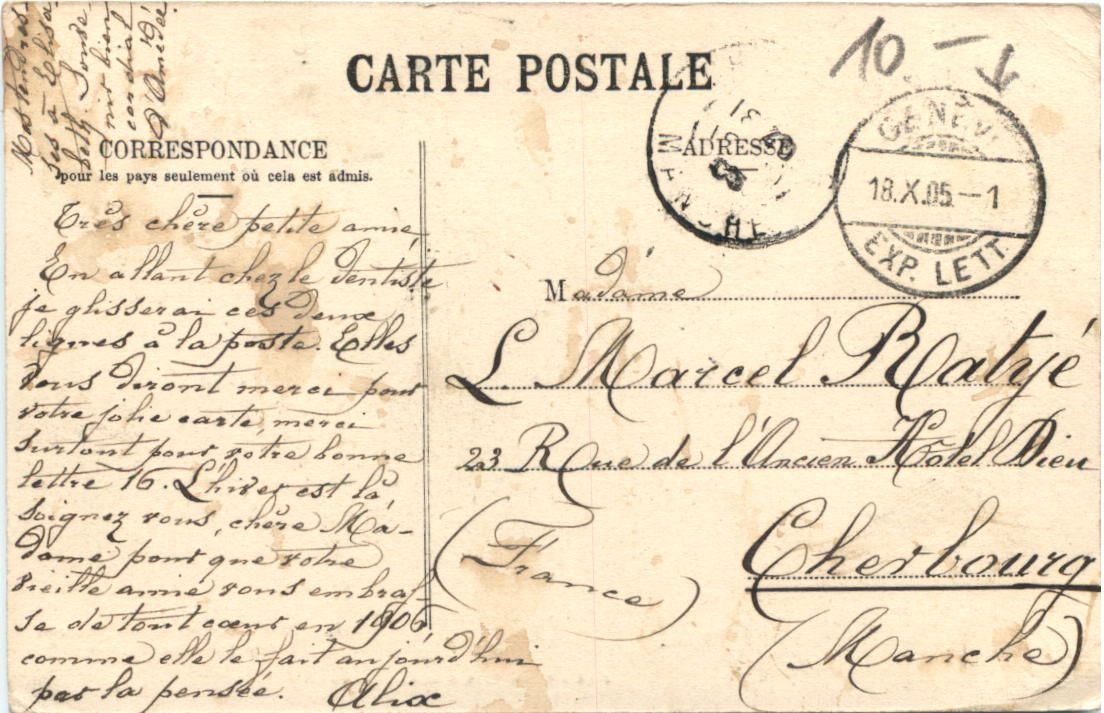 Mes tendres-
ses à Elisa-
beth. Souve-
nir bien
cordial
d'Amédée
CARTE POSTALE
10 -
CORRESPONDANCE
pour les pays seulement où cela est admis.
ADRESSE
MANCHE
GENÈV
18.X.05.-1
EXP. LETT.
Très chère petite amie
En allant chez le dentiste
je glisserai ces deux
lignes à la poste. Elles
vous diront merci pour
votre jolie carte, merci
surtout pour votre bonne
lettre 16. L'hiver est là,
soignez vous, chère Ma-
dame pour que votre
vieille amie vous embras
se de tout coeur en 1906
comme elle le fait aujourd'hui
par la pensée. Alix
Madame
L. Marcel Ratyé
23 Rue de l'Ancien Hôtel Dieu
Cherbourg
(France)
(Manche)